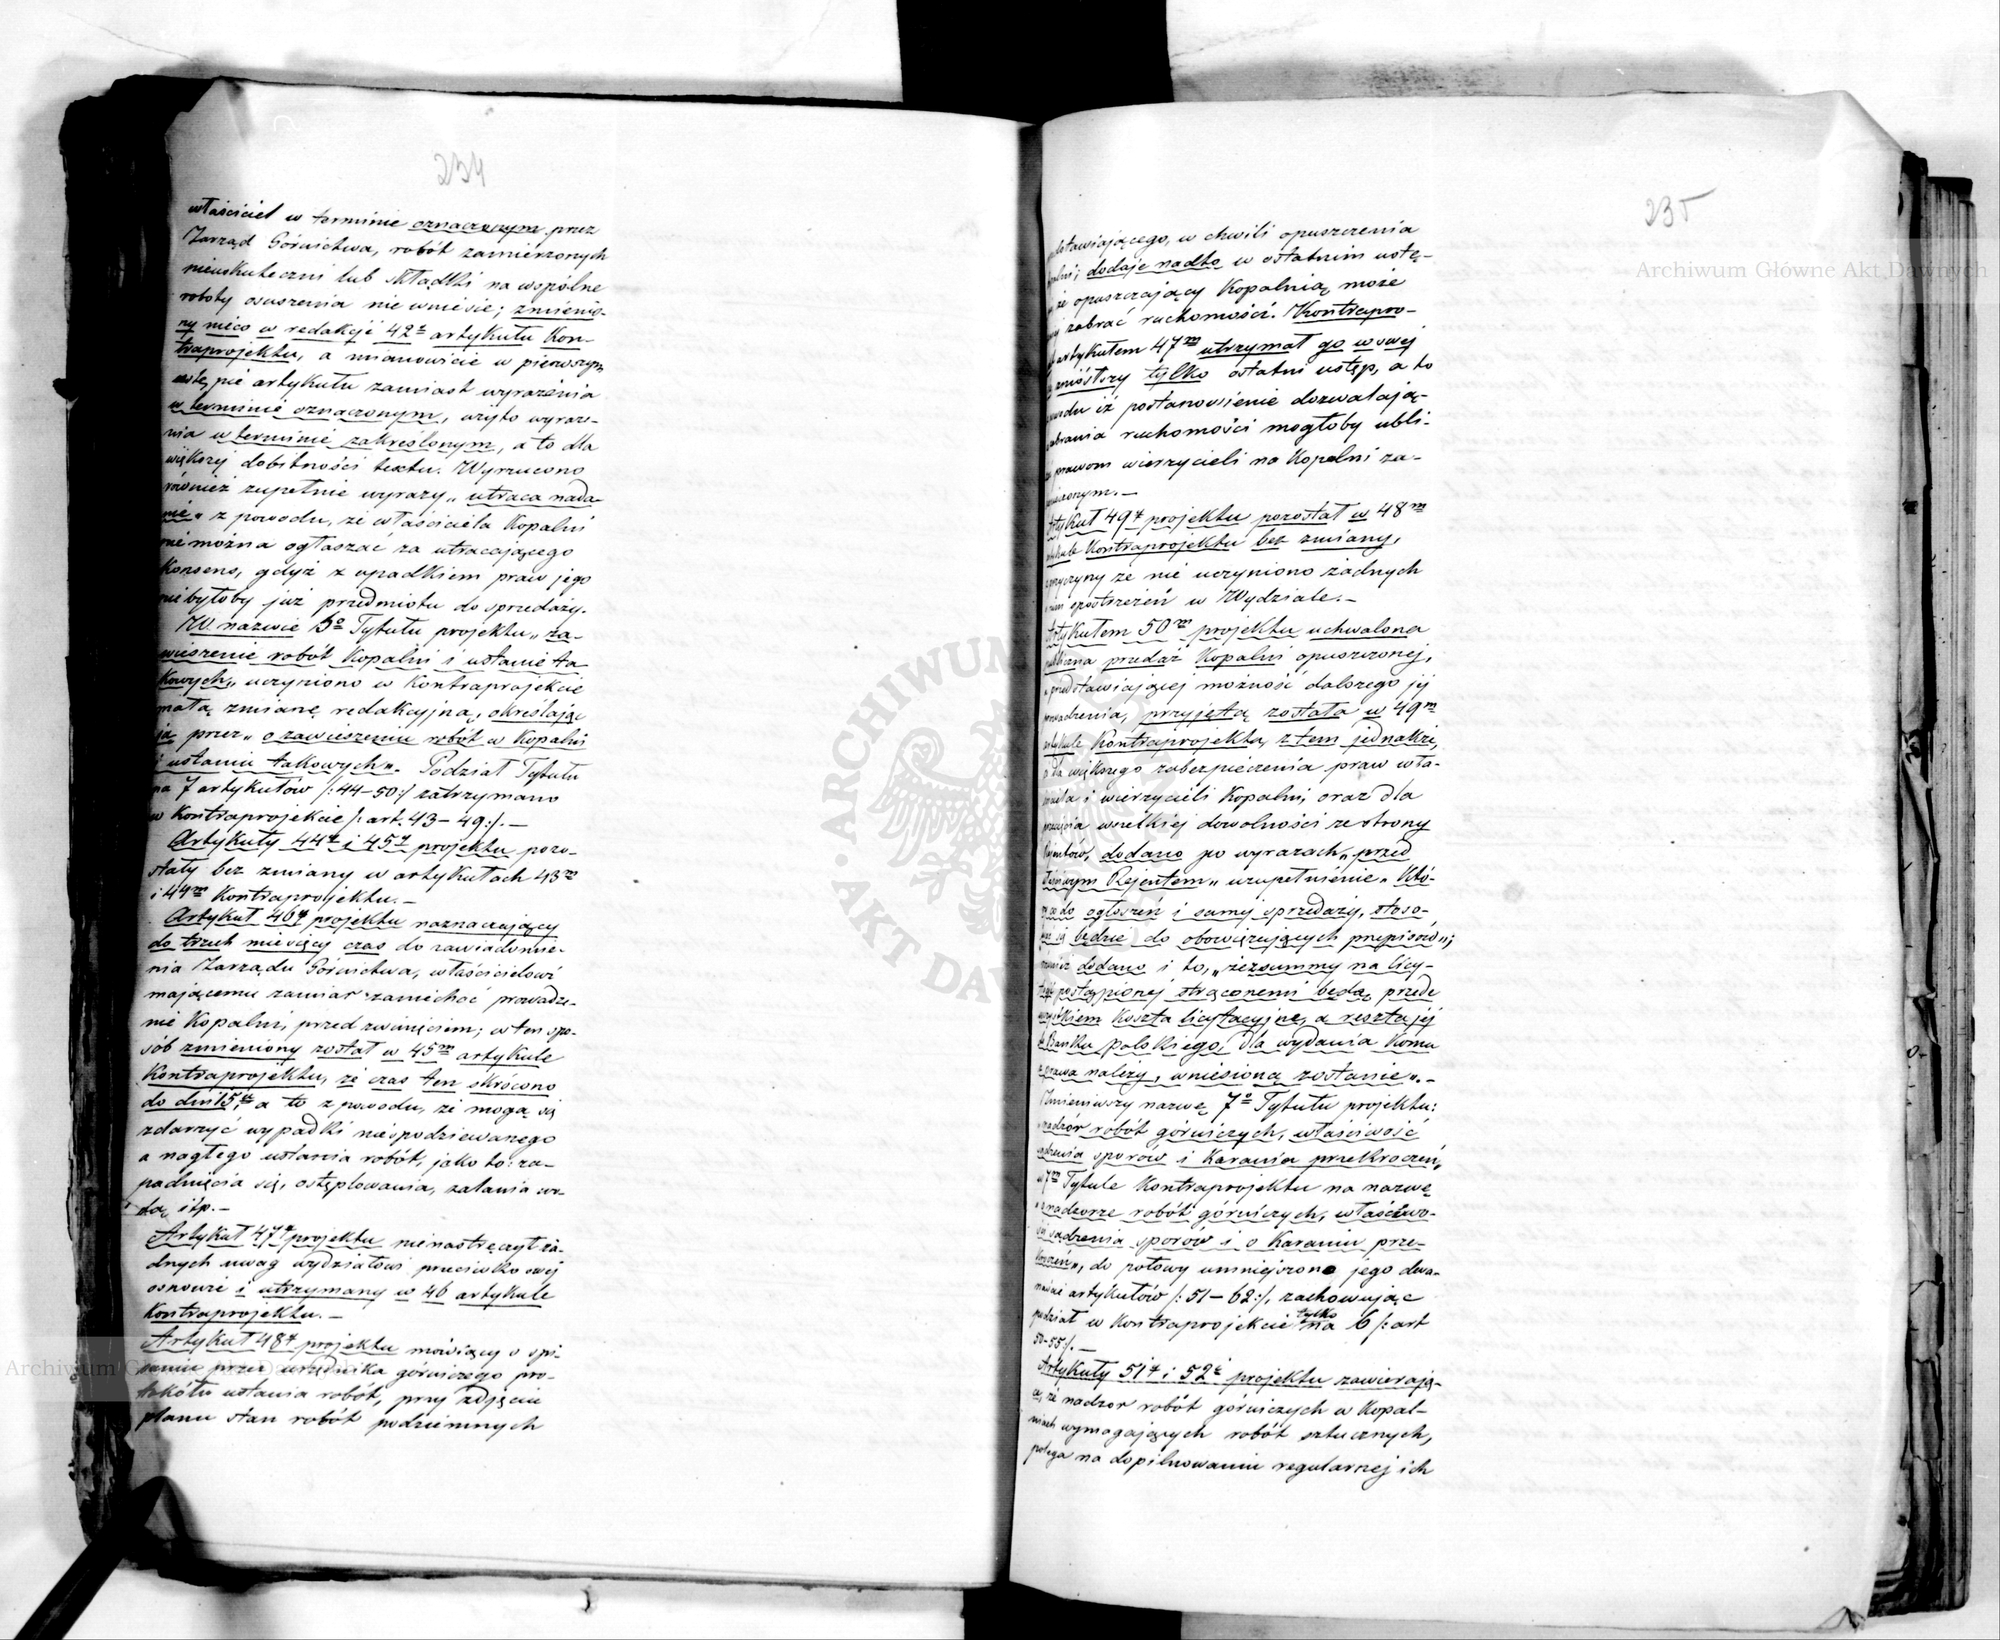 234
właściciel w terminie oznaczonym przez
Zarząd Górnictwa, robót zamierzonych
nieuskuteczni lub składki na wspólne
roboty osuszenia nie wniesie; zmienio-
ny nieco w redakcji 42ż artykułu Kon-
traprojektu, a mianowicie w pierwszym
ustępie artykułu zamiast wyrażenia
w terminie oznaczonym, użyto wyraże-
nia w terminie zakreślonym, a to dla
większej dobitności textu. Wyrzucono
również zupełnie wyrazy „utraca nada-
nie" z powodu, że właściciela Kopalni
nie można ogłaszać za utracającego
Konsens, gdyż z upadkiem praw jego
nie byłoby już przedmiotu do sprzedaży.
W nazwie 5o Tytułu projektu „za-
wieszenie robót Kopalni i ustanie ta
kowych" uczyniono w Kontraprojekcie
małą zmianę redakcyjną, określając
ją przez „o zawieszeniu robót w Kopalni
i ustaniu takowych". Podział Tytułu
na 7 artykułów /:44-50:/ zatrzymano
w Kontraprojekcie /: art. 43-49:/.-
Artykuły 44ty i 45ty projektu pozo-
stały bez zmiany w artykułach 43m
i 44m Kontraprojektu.-
Artykuł 46ty projektu naznaczający
do trzech miesięcy czas do zawiadomie-
nia Zarządu Górnictwa, właścicielowi
mającemu zamiar zaniechać prowadze-
nie Kopalni, przed zwinięciem; w ten spo-
sób zmieniony został w 45m artykule
Kontraprojektu, że czas ten skrócono
do dni 15tu, a to z powodu, że mogą się
zdarzyć wypadki niespodziewanego
a nagłego ustania robót, jako to: za-
padnięcia się, ostęplowania, zalania wo-
dą itp.-
Artykuł 47ty projektu nie nastręczył ża-
dnych uwag wydziałowi przeciwko swej
osnowie i utrzymany w 46 artykule
Kontraprojektu.-
Artykuł 48ty projektu mówiący o spi-
saniu przez urzędnika górniczego pro-
tokółu ustania robót, przy zdjęciu
planu stan robót podziemnych
235
stawiającego, w chwili opuszczenia
dodaje nadto w ostatnim ustę-
że opuszczający Kopalnią może
zabrać ruchomości. Kontrapro-
artykułem 47m utrzymał go w swej
zniósłszy tylko ostatni ustęp, a to
iż postanowienie dozwalają-
zabrania ruchomości mogłoby ubli-
prawom wierzycieli na Kopalni za-
Artykuł 49ty projektu pozostał w 48m
artykule Kontraprojektu bez zmiany,
przyczyny że nie uczyniono żadnych
spostrzeżeń w Wydziale.-
Artykułem 50m projektu uchwalona
publiczna przedaż Kopalni opuszczonej,
przedstawiającej możność dalszego jej
prowadzenia, przyjętą została w 49m
artykule Kontraprojektu, z tem jednakże,
dla większego zabezpieczenia praw wła-
ściciela i wierzycieli Kopalni, oraz dla
wszelkiej dowolności ze strony
Rejentów, dodano po wyrazach „przed
Rejentem" uzupełnienie „któ-
co do ogłoszeń i samej sprzedaży, stoso-
się będzie do obowiązujących przepisów";
również dodano i to, „że z summy na licy-
tacji postąpionej strąconemi będą, przede
wszystkiem koszta licytacyjne, a reszta jej
do Banku polskiego, dla wydania komu
z prawa należy, wniesioną zostanie".-
Zmieniwszy nazwę 7o Tytułu projektu:
nadzór robót górniczych, właściwość
sądzenia sporów i karania przekroczeń,
w 7m Tytule Kontraprojektu na nazwę
„o nadzorze robót górniczych, właściwo-
ści sądzenia sporów i o karaniu prze-
kroczeń", do połowy umniejszono jego dwa-
naście artykułów /:51-62:/, zachowując
podział w Kontraprojekcie tylko na 6 /: art
50-55:/.-
Artykuły 51ty i 52i projektu zawierają-
ce, że nadzór robót górniczych w Kopal-
niach wymagających robót sztucznych,
polega na dopilnowaniu regularnej ich
Archiwum Główne Akt Dawnych
ARCHIWUM
AKT DAW